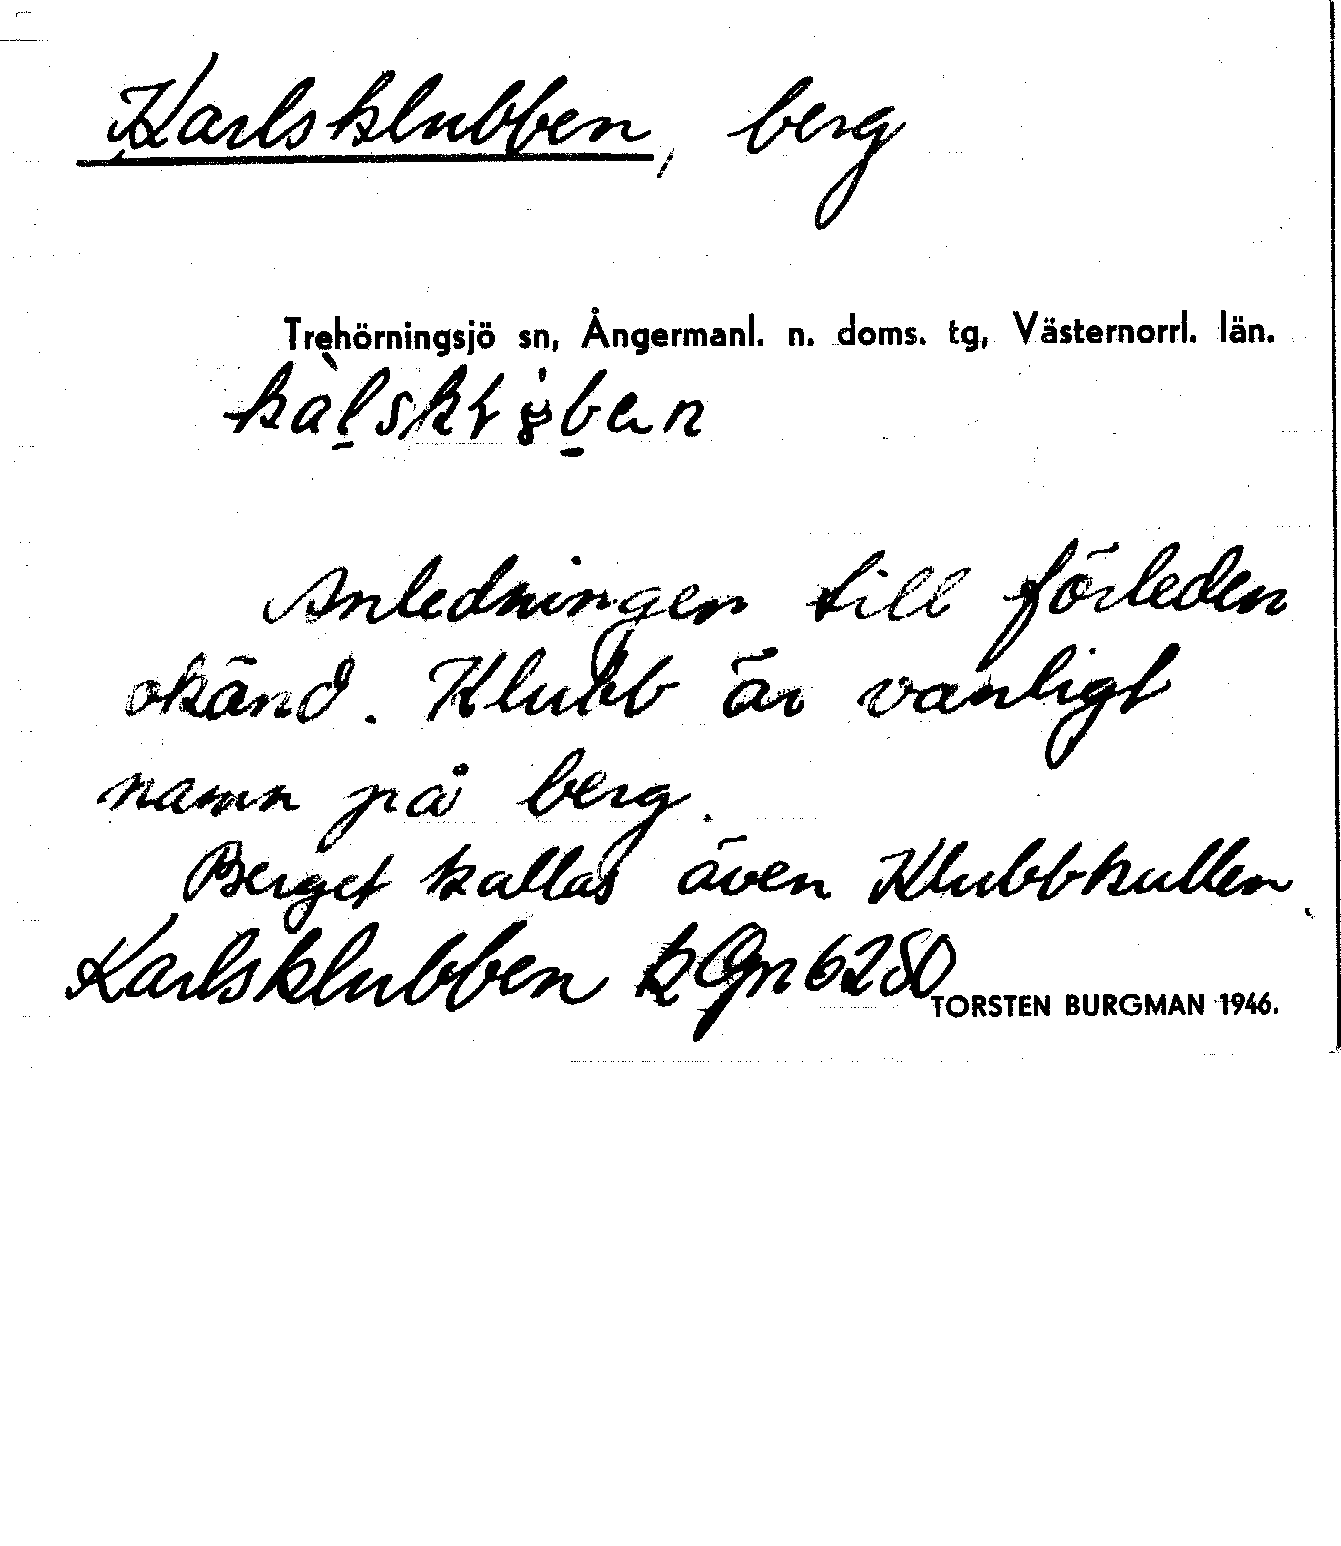 Karlsklubben, berg
Trehörningsjö sn, Ångermanl. n. doms. tg, Västernorrl. län.
Anledningen till förleden
okänd. Klubb är vanligt
namn på berg.
Berget kallas även Klubbkullen.
Karlsklubben k Gm 6280
TORSTEN BURGMAN 1946.